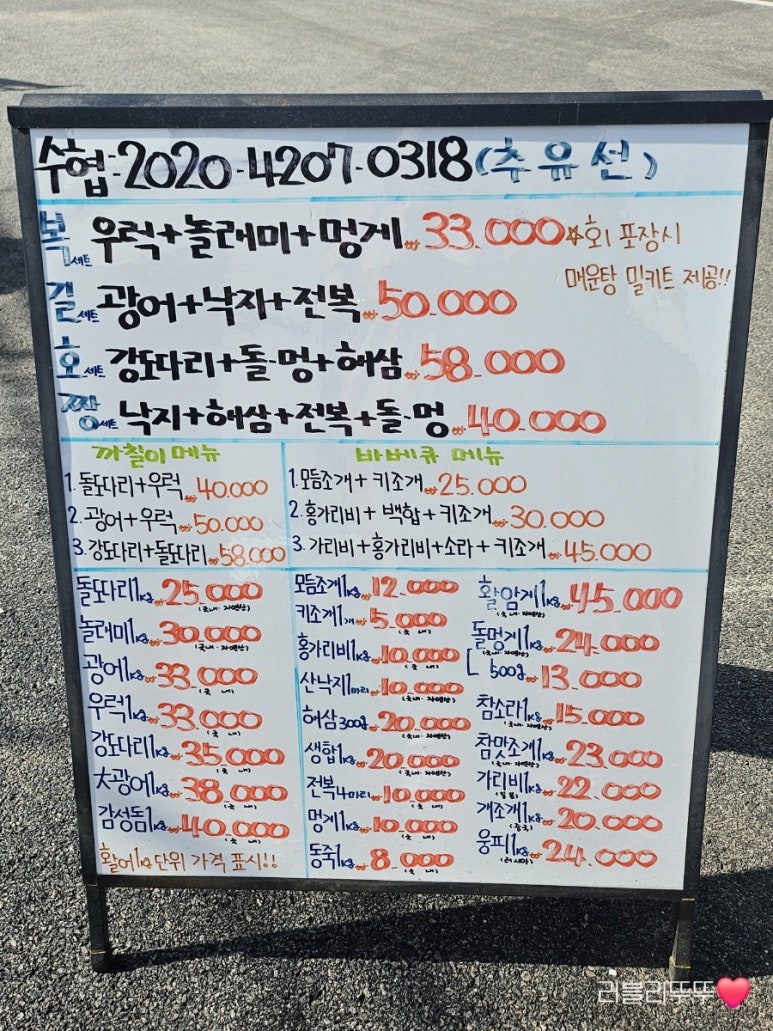 수협-2020-4207-0318(추유선)
복세트 우럭+놀래미+멍게₩33.000 ☆회 포장시
매운탕 밀키트 제공!!
길세트 광어+낙지+전복₩50.000
호세트 강도다리+돌·멍+해삼₩58.000
짱세트 낙지+해삼+전복+돌·멍₩40.000
까칠이 메뉴
1.돌도다리+우럭₩40.000
2.광어+우럭₩50.000
3.강도다리+돌도다리₩58.000
바베큐 메뉴
1.모듬조개+키조개₩25.000
2.홍가리비+백합+키조개₩30.000
3.가리비+홍가리비+소라+키조개₩45.000
돌도다리1kg₩25.000
(국내·자연산)
놀래미1kg₩30.000
(국내·자연산)
광어1kg₩33.000
(국내)
우럭1kg₩33.000
(국내)
강도다리1kg₩35.000
(국내)
大광어1kg₩38.000
(국내)
감성돔1kg₩40.000
(국내)
활어1kg단위 가격 표시!!
모듬조개1kg₩12.000
키조개1개₩5.000
(국내)
홍가리비1kg₩10.000
(국내)
산낙지1마리₩10.000
(국내·자연산)
해삼300g₩20.000
(국내·자연산)
생합1kg₩20.000
(국내·자연산)
전복4마리₩10.000
(국내)
멍게1kg₩10.000
(국내)
동죽1kg₩8.000
(국내)
활암게1kg₩45.000
(국내·자연산)
돌멍게1kg₩24.000
(국내·자연산)
500g₩13.000
참소라1kg₩15.000
(국내·자연산)
참맛조개1kg₩23.000
(국내·자연산)
가리비1kg₩22.000
(일본)
개조개1kg₩20.000
(중국)
웅피1kg₩24.000
(러시아)
러블리뚜뚜